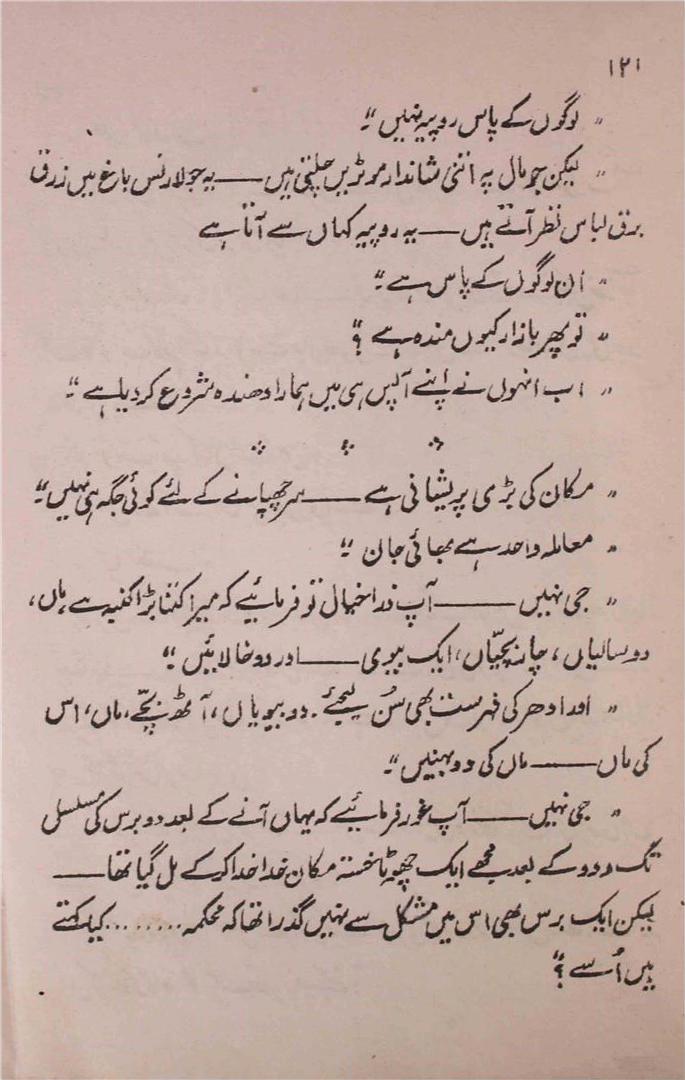 ۱۲۱
" لوگوں کے پاس روپیہ نہیں "۔
" لیکن جو مال پہ اتنی شاندار موٹریں چلتی ہیں —— یہ جو لارنس باغ میں زرق
برق لباس نظر آتے ہیں —— یہ روپیہ کہاں سے آتا ہے
" ان لوگوں کے پاس ہے "۔
" تو پھر بازار کیوں مندہ ہے ؟"
" اب انہوں نے اپنے آپس ہی میں ہمارا دھندہ شروع کر دیا ہے "۔
" مکان کی بڑی پریشانی ہے —— سر چھپانے کے لئے کوئی جگہ ہی نہیں "۔
" معاملہ واحد ہے بھائی جان "۔
" جی نہیں —— آپ ذرا خیال تو فرمائیے کہ میرا کتنا بڑا کنبہ ہے، ماں،
دو سالیاں، چار بچیّاں، ایک بیوی —— اور دو خالائیں "۔
" اور ادھر کی فہرست بھی سُن لیجئے۔ دو بیویاں، آٹھ بچّے، ماں، اس
کی ماں —— ماں کی دو بہنیں "۔
" جی نہیں —— آپ غور فرمائیے کہ یہاں آنے کے بعد دو برس کی مسلسل
تگ و دو کے بعد مجھے ایک چھوٹا خستہ مکان خدا خدا کر کے مل گیا تھا ——
لیکن ایک برس بھی اس میں مشکل سے نہیں گذرا تھا کہ محکمہ ........ کیا کہتے
ہیں اُسے ؟"